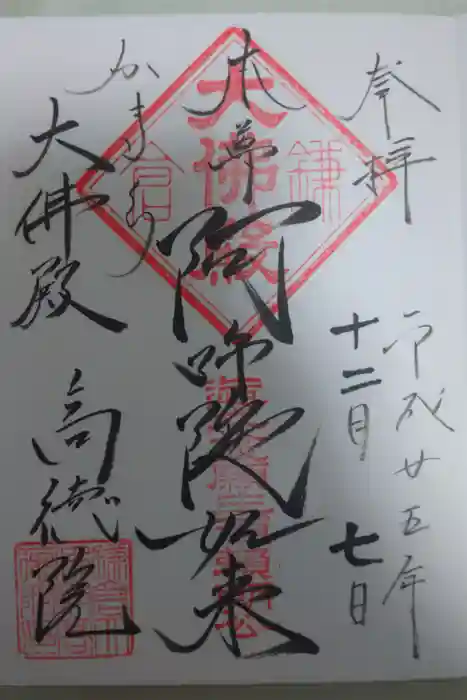 奉拝
平成廿五年
十二月七日
本尊
阿弥陀如来
かまくら
大佛殿
高徳院
鎌倉
大佛殿